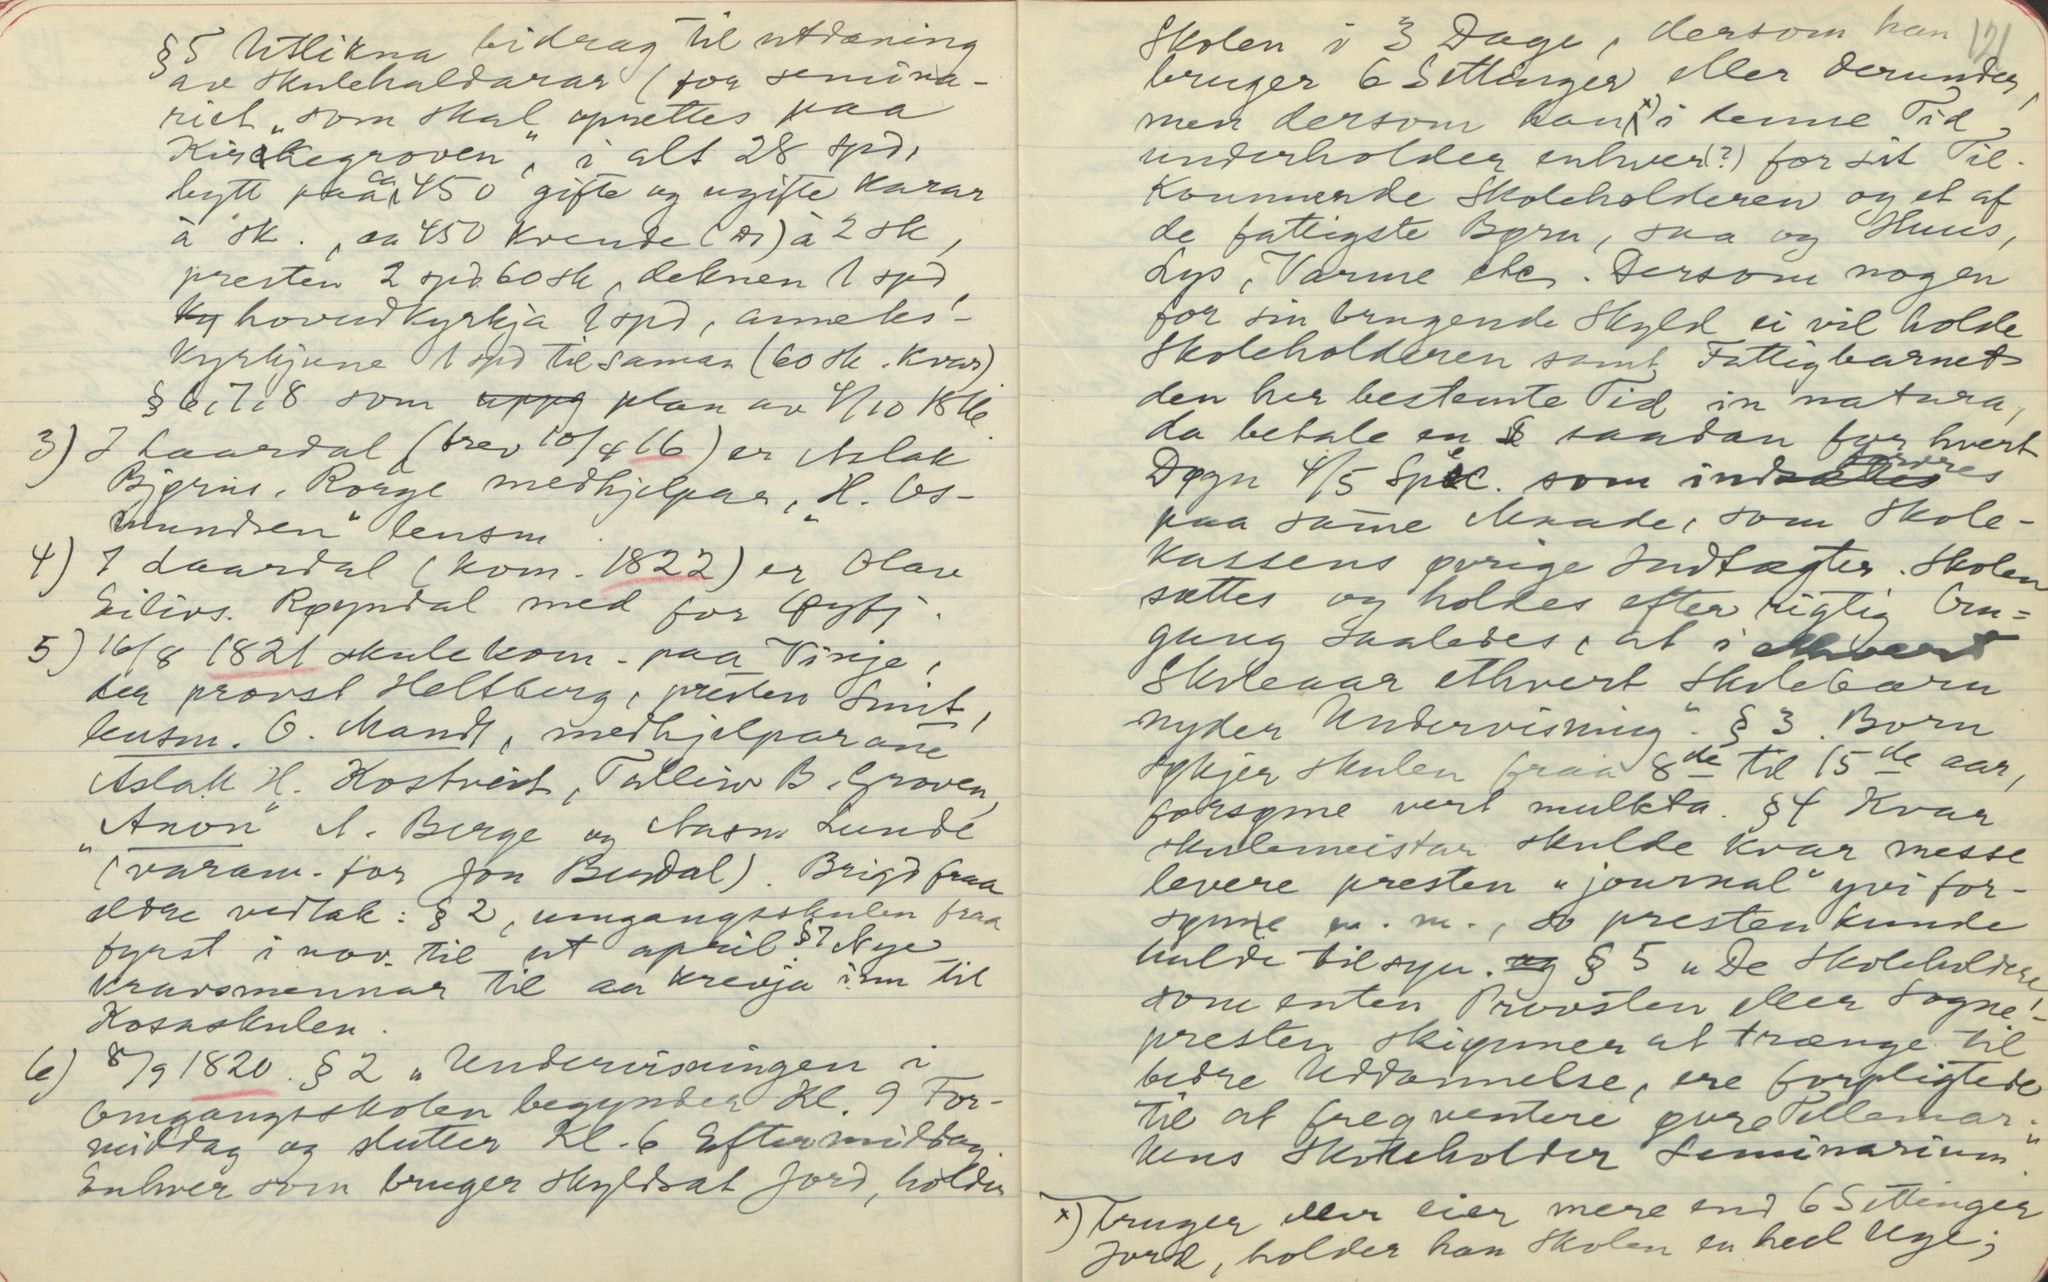 § 5 Utlikna bidrag til utdaning
av skulehaldarar (for semina-
riet „som skal oprettes paa
Kirkegroven“, i alt 28 spd,
bytt paa ca 450 gifte og ugifte karar
à sk., ca 450 kvende (as) à 2 sk,
presten 2 spd 60 sk, deknen 1 spd,
hovudkyrkja 1 spd, anneks-
kyrkjune 1 spd tilsaman (60 sk. kvar)
§ 6, 7, 8 som plan av 4/10 1816.
3) I Laardal (brev 10/4 16) er Aslak
Bjørns. Rorge medhjelpar, „H. Os-
mundsen“ lensm.
4) I Laardal (kom. 1822) er Olav
Eilivs. Røyndal med for Øyfj.
5) 16/8 1821 skulekom. paa Vinje,
der provst Heltberg, presten Smit,
lensm. O. Mandt, medhjelparane
Aslak H. Kostveit, Talleiv B. Groven,
„Anon“ A. Berge og Aasm Lunde
(varam. for Jon Busdal). Brigd fraa
eldre vedtak: § 2, umgangsskulen fraa
fyrst i nov. til ut april. § 7 Nye
kravsmennar til aa krevja inn til
Kosaskulen.
6) 8/9 1820. § 2 „Undervisningen i
Omgangsskolen begynder Kl. 9 For-
middag og slutter Kl. 6 Eftermiddag.
Enhver som bruger skyldsat Jord, holder
121
Skolen i 3 Dage, dersom han
bruger 6 Settinger eller derunder,
men dersom han x) i denne Tid
underholder enhver (?) for sit Til-
kommende Skoleholderen og et af
de fattigste Børn, saa og Huus,
Lys, Varme etc. Dersom nogen
for sin brugende Skyld ei vil holde
Skoleholderen samt Fattigbarnet
den her bestemte Tid in natura,
da betale en saadan for hvert
Døgn 4/5 Spec. som indfordres
paa same Maade, som Skole-
kassens øvrige Indtægter. Skolen
sættes og holdes efter rigtig Om-
gang saaledes, at i ethvert
Skoleaar ethvert Skolebarn
nyder Undervisning“. § 3. Born
søkjer skulen fraa 8de til 15de aar,
forsøme vert mulkta. § 4 Kvar
skulemeistar skulde kvar messe
levere presten „journal“ yvi for-
søme m. m., so presten kunde
halde tilsyn. § 5 „De Skoleholdere,
som enten Provsten eller Sogne-
presten skiønner at trænge til
bedre Uddannelse, ere forpligtede
til at freqventere øvre Tellemar-
kens Skoleholder Seminarium“.
x) bruger eller eier mere end 6 Settinger
Jord, holder han Skolen en heel Uge;